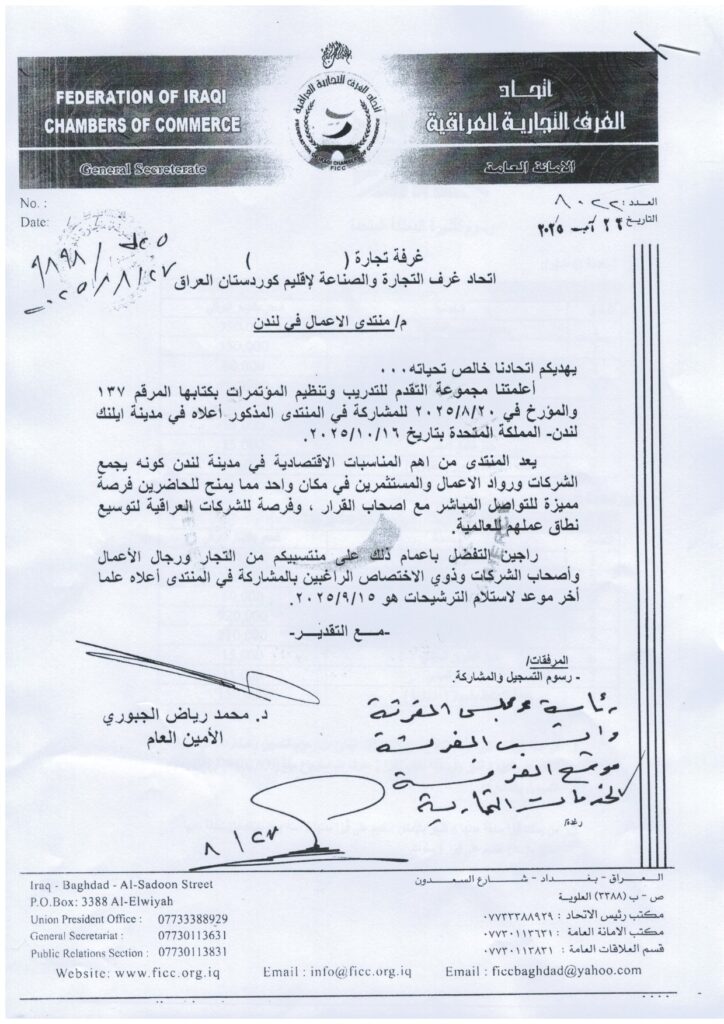 FEDERATION OF IRAQI
CHAMBERS OF COMMERCE
General Secreterate
اتحاد
الغرف التجارية العراقية
الامانة العامة
اتحاد الغرف التجارية العراقية
FICC
No. :
Date:
العدد : ٨٠٢٢
التاريخ ٢٤ آب ٢٠٢٥
٩٨٩٨
٢٠٢٥/٨/٢٧
غرفة تجارة ( )
اتحاد غرف التجارة والصناعة لإقليم كوردستان العراق
م/ منتدى الاعمال في لندن
يهديكم اتحادنا خالص تحياته...
أعلمتنا مجموعة التقدم للتدريب وتنظيم المؤتمرات بكتابها المرقم ١٣٧
والمؤرخ في ٢٠٢٥/٨/٢٠ للمشاركة في المنتدى المذكور أعلاه في مدينة ايلنك
لندن- المملكة المتحدة بتاريخ ٢٠٢٥/١٠/١٦.
يعد المنتدى من اهم المناسبات الاقتصادية في مدينة لندن كونه يجمع
الشركات ورواد الاعمال والمستثمرين في مكان واحد مما يمنح للحاضرين فرصة
مميزة للتواصل المباشر مع اصحاب القرار ، وفرصة للشركات العراقية لتوسيع
نطاق عملهم للعالمية.
راجين التفضل باعمام ذلك على منتسبيكم من التجار ورجال الأعمال
وأصحاب الشركات وذوي الاختصاص الراغبين بالمشاركة في المنتدى أعلاه علما
أخر موعد لاستلام الترشيحات هو ٢٠٢٥/٩/١٥.
-مـع التقديـر-
المرفقات/
- رسوم التسجيل والمشاركة.
د. محمد رياض الجبوري
الأمين العام
رئاسة ومجلس الغرفة
موقع الغرفة
الخدمات التجارية
رغدة/
٨/٢٧
Iraq - Baghdad - Al-Sadoon Street
P.O.Box: 3388 Al-Elwiyah
Union President Office : 07733388929
General Secretariat : 07730113631
Public Relations Section : 07730113831
العـراق - بغـداد - شـارع السعـدون
ص - ب (٣٣٨٨) العلوية
مكتب رئيس الاتحاد : ٠٧٧٣٣٣٨٨٩٢٩
مكتب الامانة العامة : ٠٧٧٣٠١١٣٦٣١
قسم العلاقات العامة : ٠٧٧٣٠١١٣٨٣١
Website: www.ficc.org.iq Email : info@ficc.org.iq Email : ficcbaghdad@yahoo.com